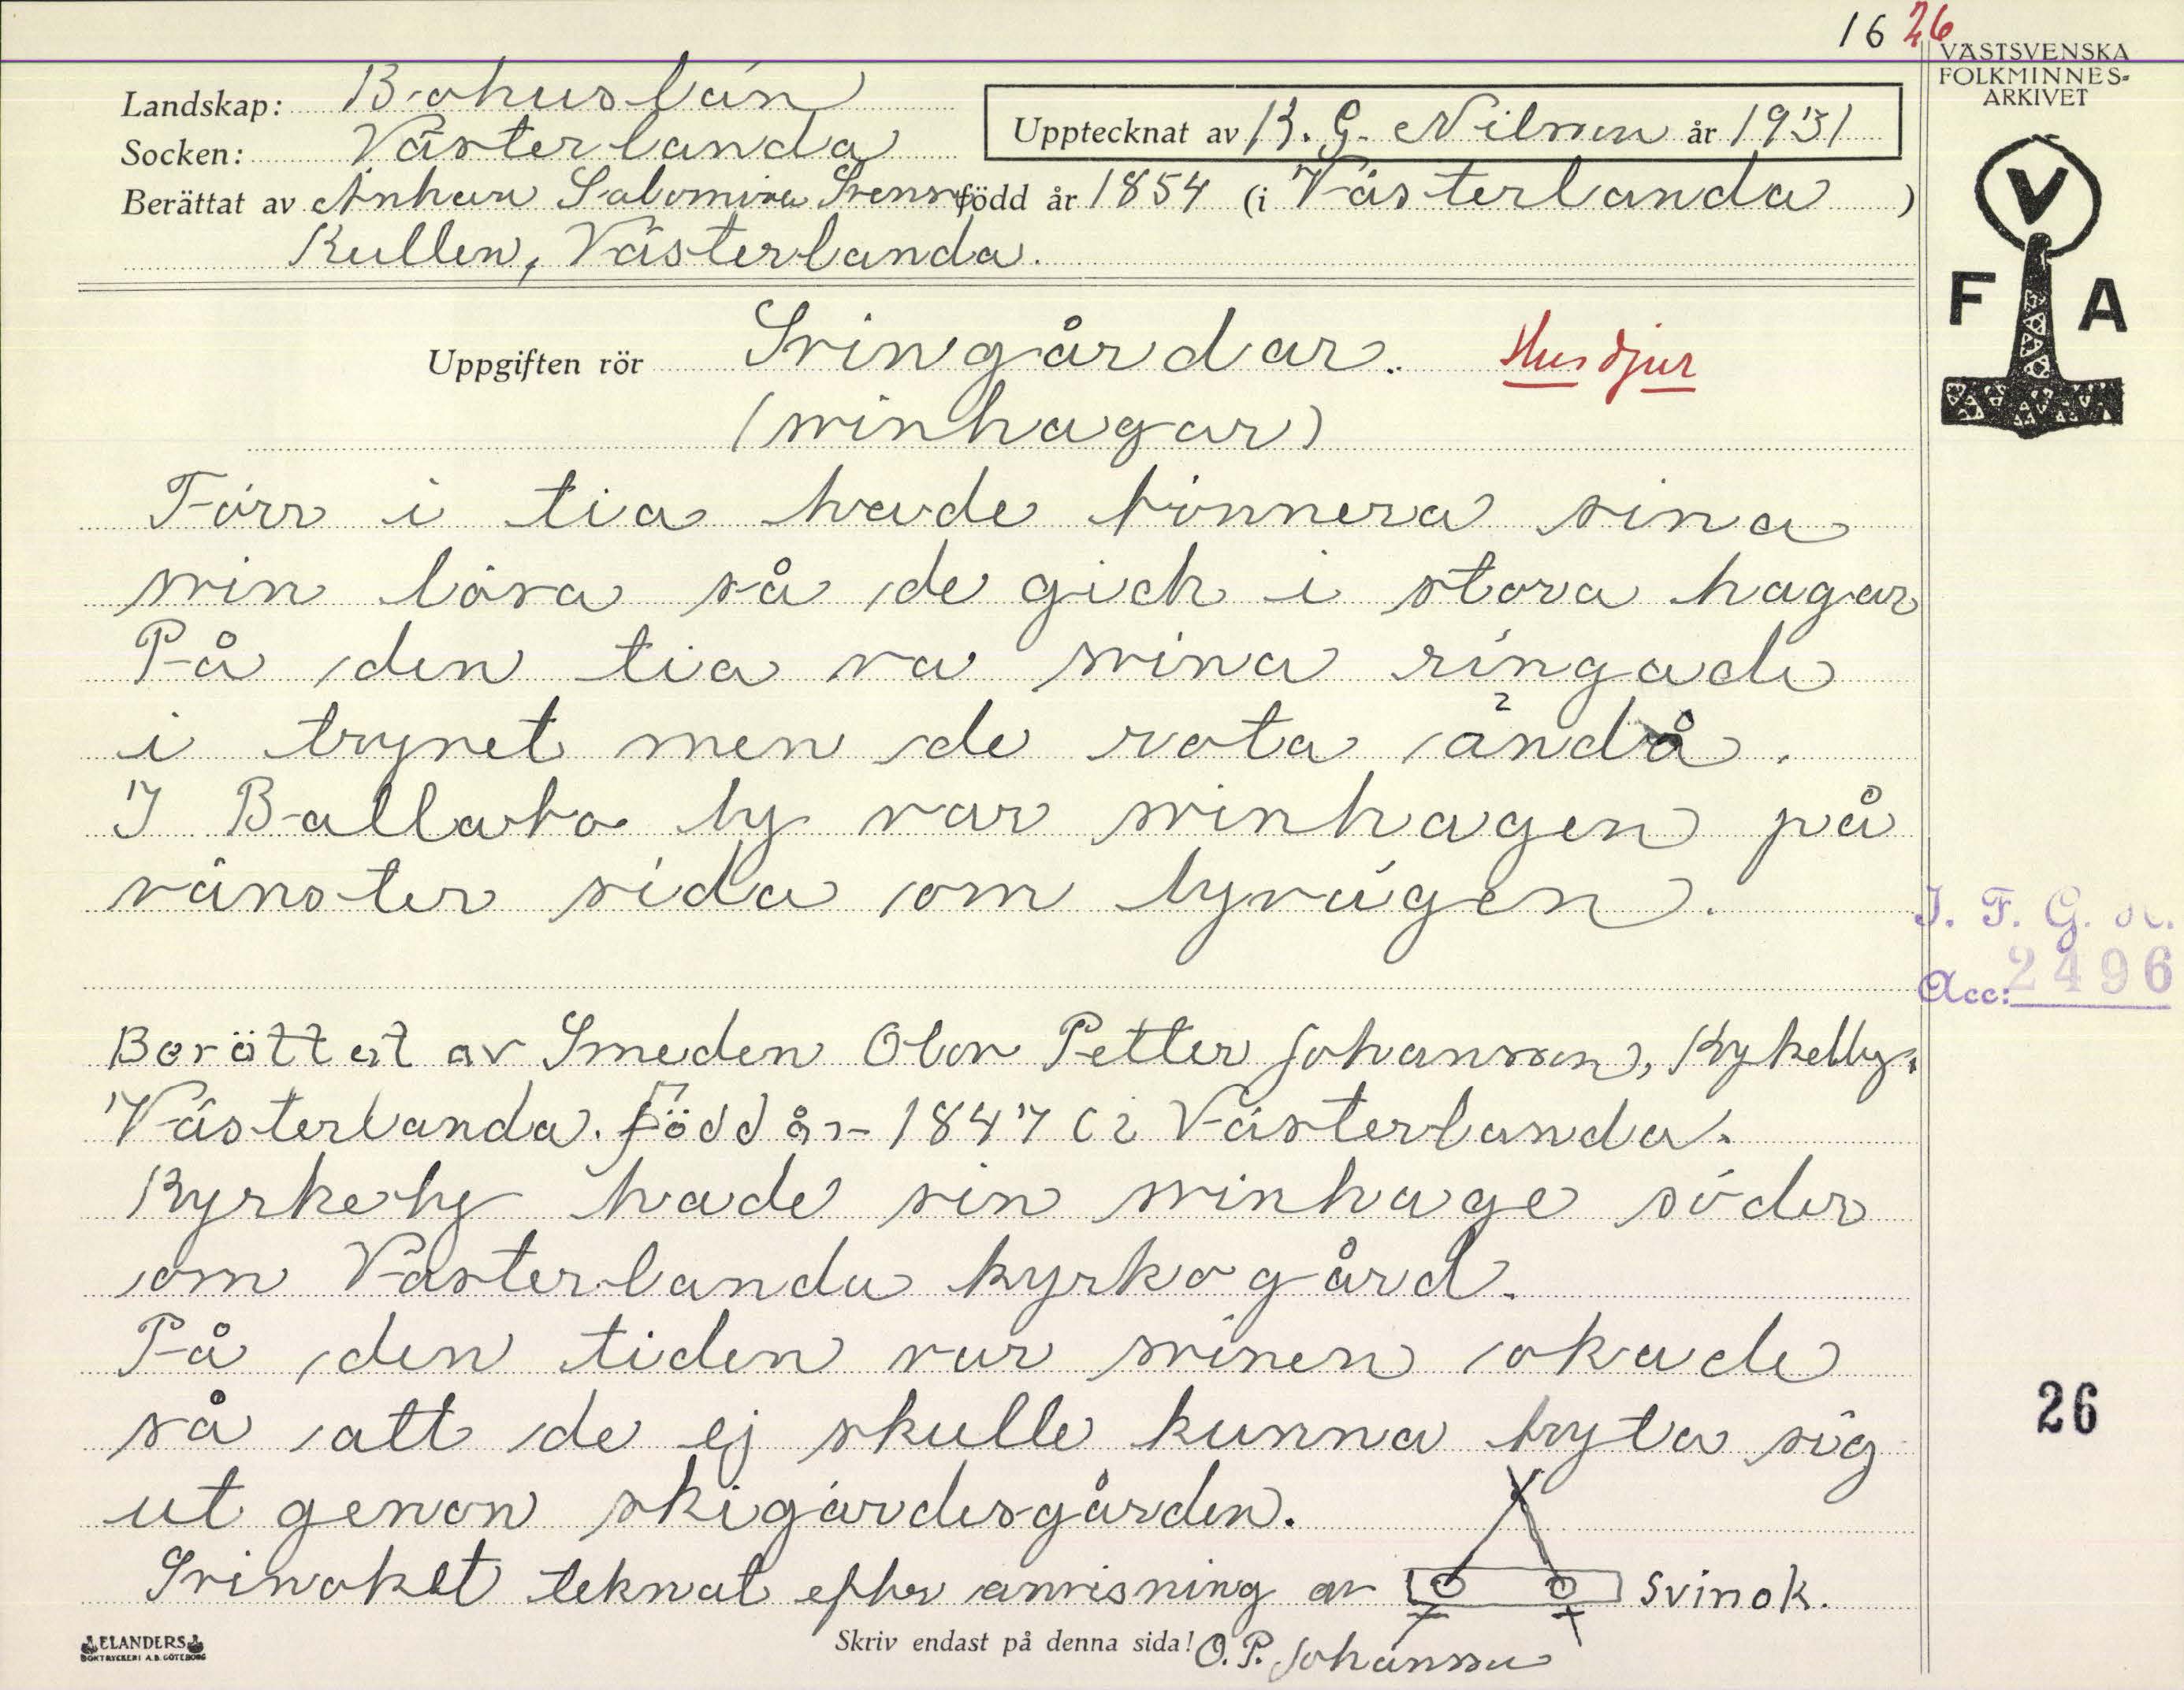 16 26
VÄSTSVENSKA
FOLKMINNES-
ARKIVET
Landskap: Bohuslän
Upptecknat av K. G. Nilsson år 1931
Socken: Västerlanda
Berättat av Änkan Salomina Svenss född år 1854 (i Västerlanda )
Kullen, Västerlanda.
V
F A
Uppgiften rör Svingårdar. Husdjur
(svinhagar)
Förr i tia hade bönnera sina
svin lösa så de gick i stora hagar
På den tia va svina ringade
i trynet men de rota ändå.
I Ballabo by var svinhagen på
vänster sida om byvägen.
I. F. G. H.
Acc: 2496
Berättat av Smeden Olov Petter Johansson, Kykebby.
Västerlanda. Född år 1847 (i Västerlanda.
Kyrkeby hade sin svinhage söder
om Västerlanda kyrkogård.
På den tiden var svinen okade
så att de ej skulle kunna bryta sig
26
ut genon skigärdesgården.
Svinoket teknat efter anvisning av svinok.
ELANDERS
BOKTRYCKERI A.B. GÖTEBORG
Skriv endast på denna sida! O. P. Johansson